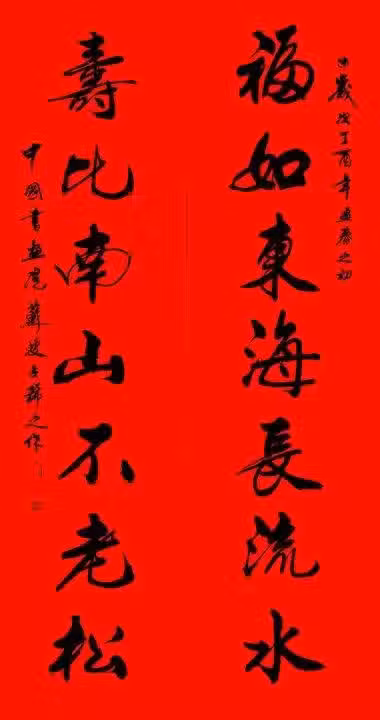 歲次丁酉年孟春之初
福如東海長流水
壽比南山不老松
中國書畫院蘇之作